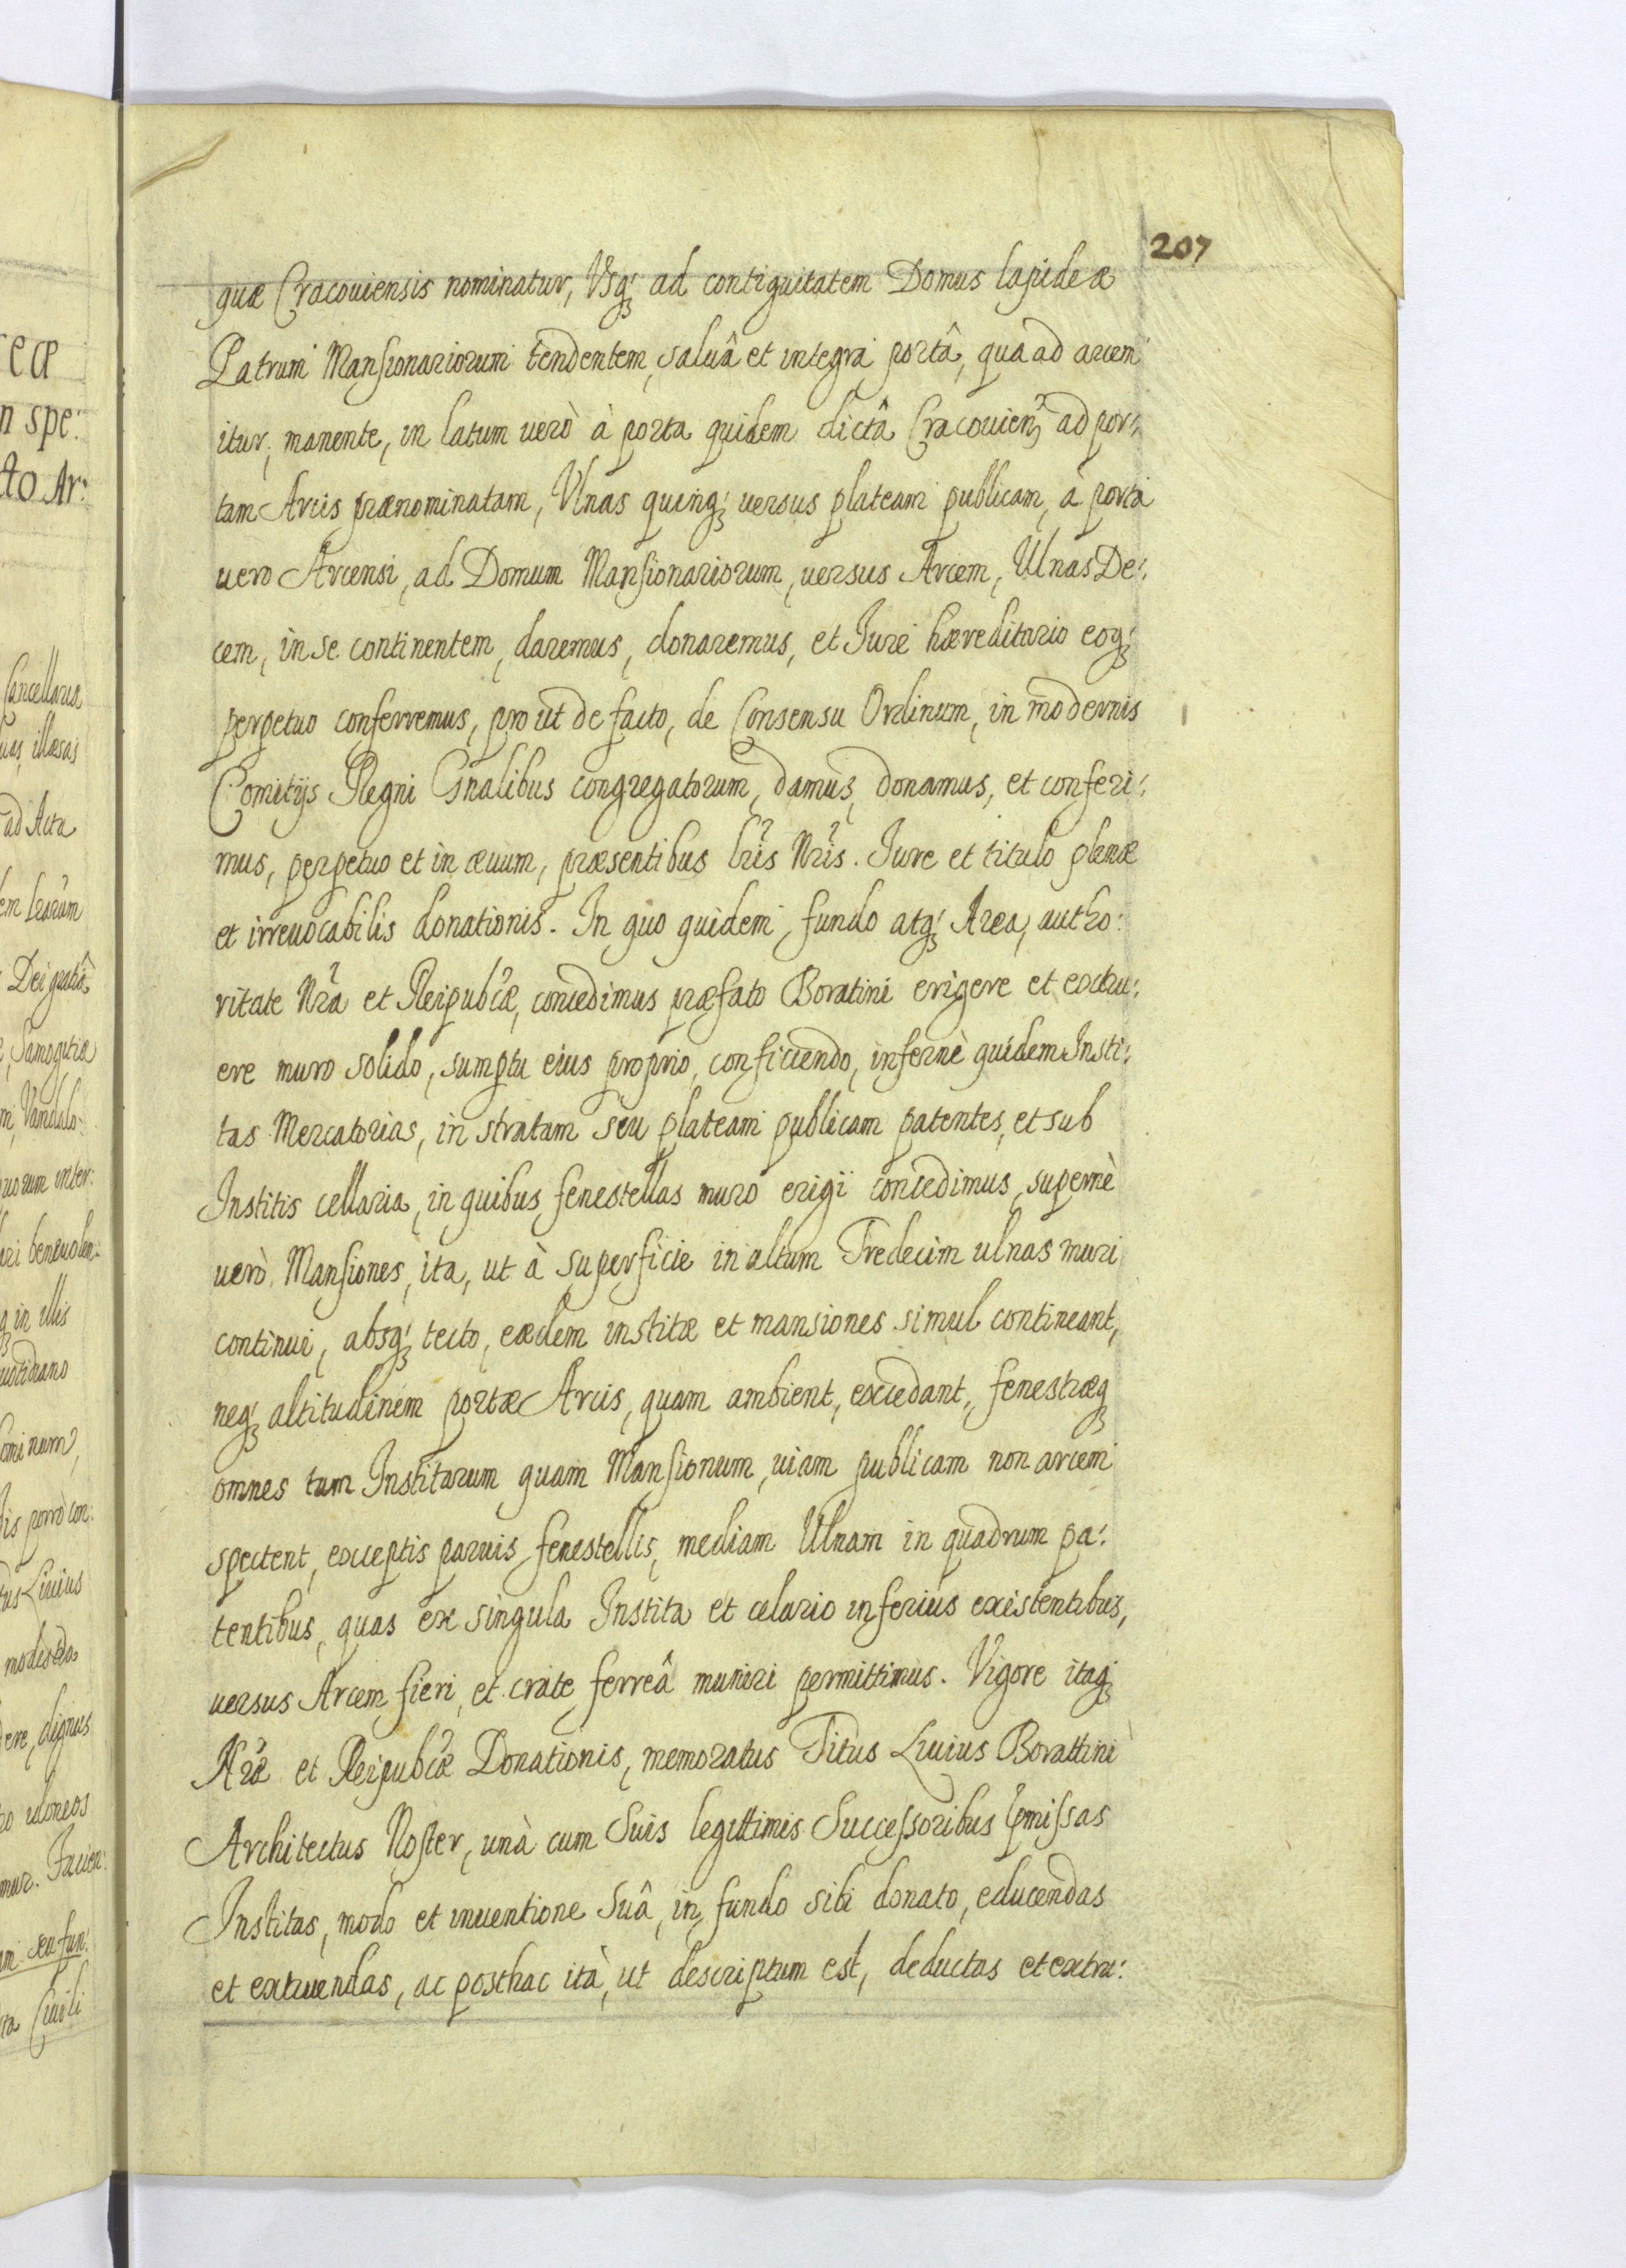 207
quæ Cracouiensis nominatur, Vsq; ad contiguitatem Domus lapideæ
Patrum Mansionariorum tendentem, saluâ et integra portâ, qua ad arcem
itur, manente, in latum uerò à porta quidem dictâ Cracouien̄ ad por:
tam Arcis prænominatam, Vlnas quinq; uersus plateam publicam, à porta
uero Arcensi, ad Domum Mansionariorum, uersus Arcem, Ulnas De:
cem, in se continentem, daremus, donaremus, et Iure hæreditario eoq;
perpetuo conferremus, pro ut de facto, de Consensu Ordinum, in modernis
Comitijs Regni Gnalibus congregatorum, damus, donamus, et conferi:
mus, perpetuo et in æuum, præsentibus lr̃is Nr̃is. Iure et titulo plenæ
et irreuocabilis donationis. In quo quidem fundo atq; Area, autho:
ritate Nr̃a et Reipub̃cæ, concedimus præfato Boratini erigere et extru:
ere muro solido, sumptu eius proprio, conficiendo, infernè quidem Insti:
tas Mercatorias, in stratam seu plateam publicam patentes, et sub
Institis cellaria, in quibus fenestellas muro erigi concedimus, supernè
uerò Mansiones, ita, ut à superficie in altum Tredecim ulnas muri
continui, absq; tecto, eædem institæ et mansiones simul contineant,
neq; altitudinem portæ Arcis, quam ambient, excedant, fenestræq;
omnes tam Institarum quam Mansionum, uiam publicam non arcem
spectent, exceptis paruis fenestellis, mediam Ulnam in quadrum pa:
tentibus, quas ex singula Instita et celario inferius existentibus,
uersus Arcem fieri, et crate ferreâ muniri permittimus. Vigore itaq;
Nr̃æ et Reipub̃cæ Donationis, memoratus Titus Liuius Borattini
Architectus Noster, unà cum Suis legittimis Successoribus p̃missas
Institas, modo et inuentione Suâ, in fundo sibi donato, educendas
et extruendas, ac posthac ità, ut descriptum est, deductas et extru: